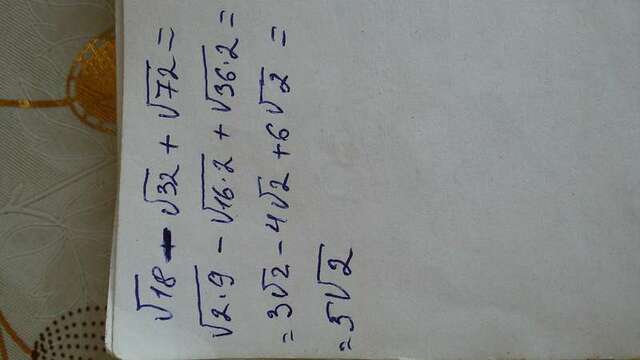 √18 - √32 + √72 =
√2·9 - √16·2 + √36·2 =
= 3√2 - 4√2 + 6√2 =
= 5√2